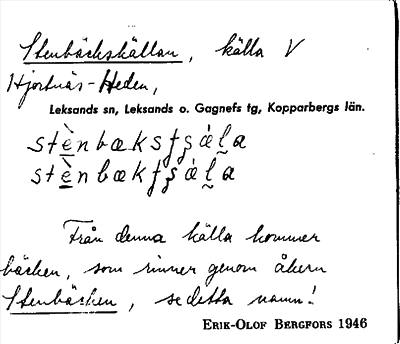 Stenbäckskällan, källa V
Hjortnäs-Heden,
Leksands sn, Leksands o. Gagnefs tg, Kopparbergs län.
stènbækstʂála
stènbækʃʂála
Från denna källa kommer
bäcken, som rinner genom åkern
Stenbäcken, se detta namn!
ERIK-OLOF BERGFORS 1946